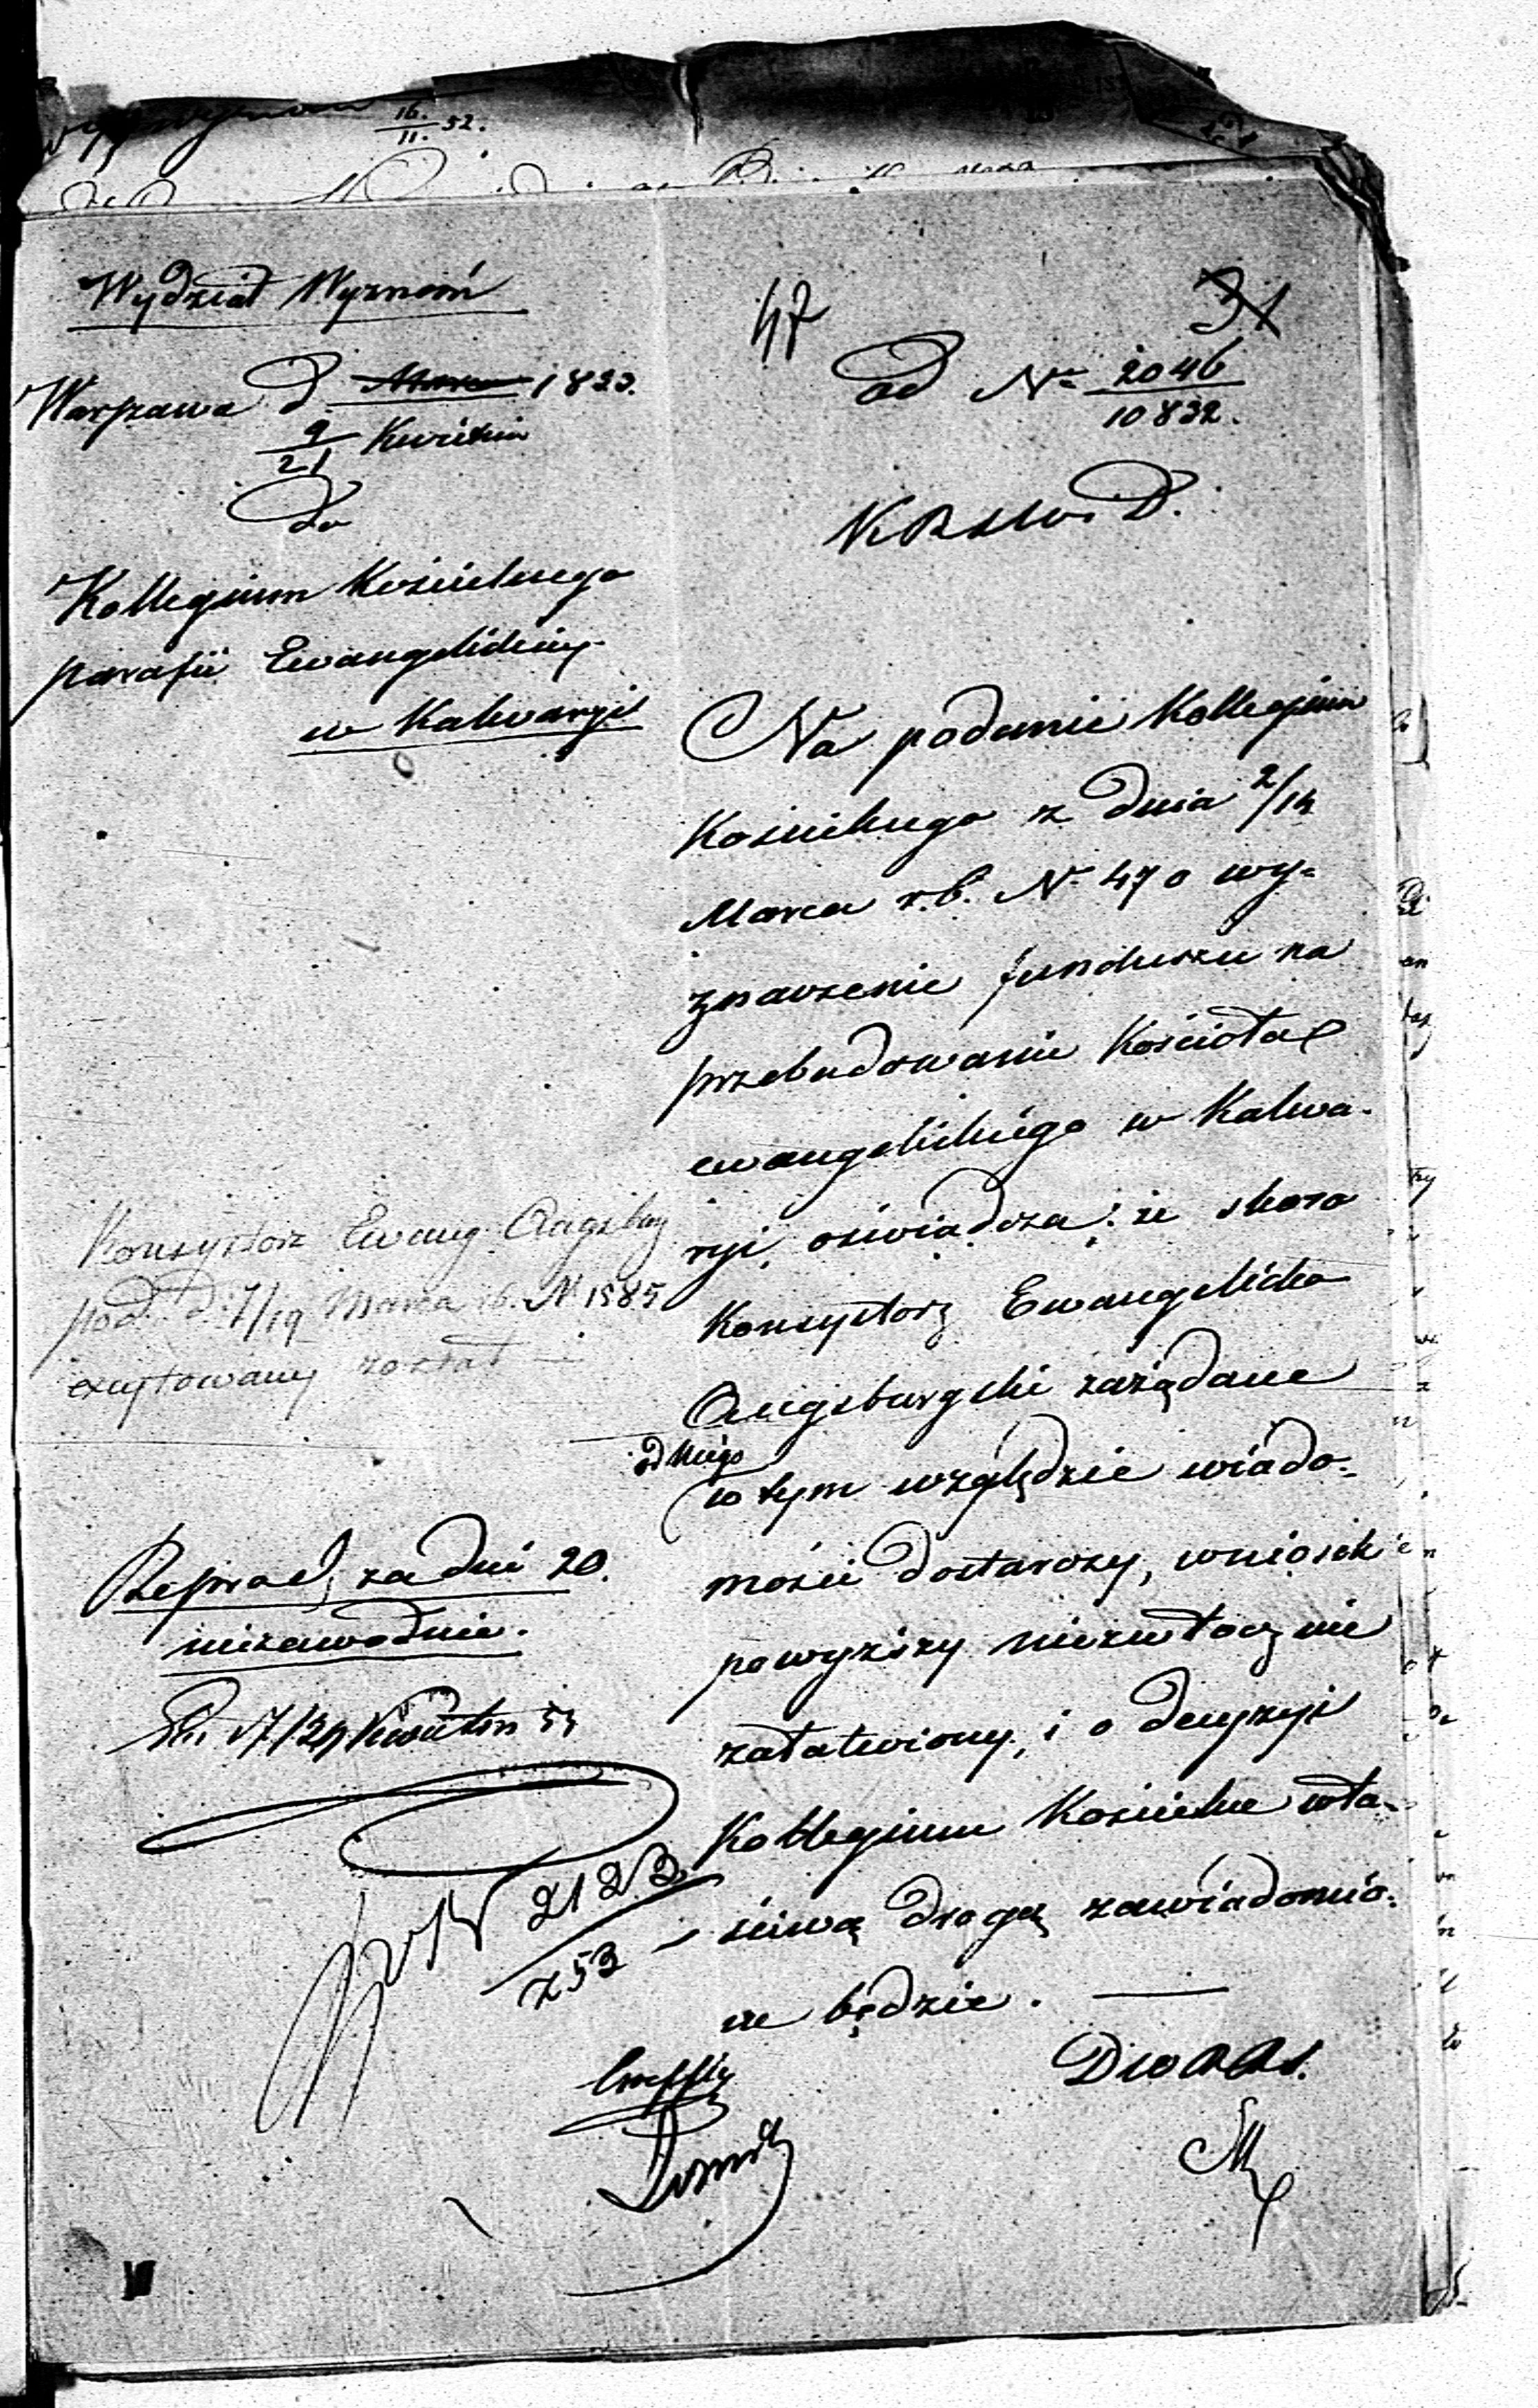 16./11. 52.
Wydział Wyznań
47
31
Warszawa d. Marca 1853.
9/21 Kwietnia
do
ad N. 2046/10832.
Kollegium Kościelnego
parafii Ewangelickiej
w Kalwaryi
Na podanie Kollegium
Kościelnego z dnia 2/14
Marca r.b. N. 470 wy-
znaczenie funduszu na
przebudowanie Kościoła
ewangelickiego w Kalwa-
ryi, oświadcza: że skoro
Konsystorz Ewangelicko
Augsburgski zażądane
od niego
w tym względzie wiado-
mości dostarczy, wniosek
powyższy niezwłocznie
załatwiony, i o decyzyi
Kollegium Kościelne wła-
ściwą drogą zawiadomio-
ne będzie.
Konsystorz Ewang. Augsbug
pod d. 7/19 Marca rb. N 1585
excytowany został
Reprod, za dni 20.
niezawodnie.
17/29 Kwietn 53
N 2123/253
D W R R S.